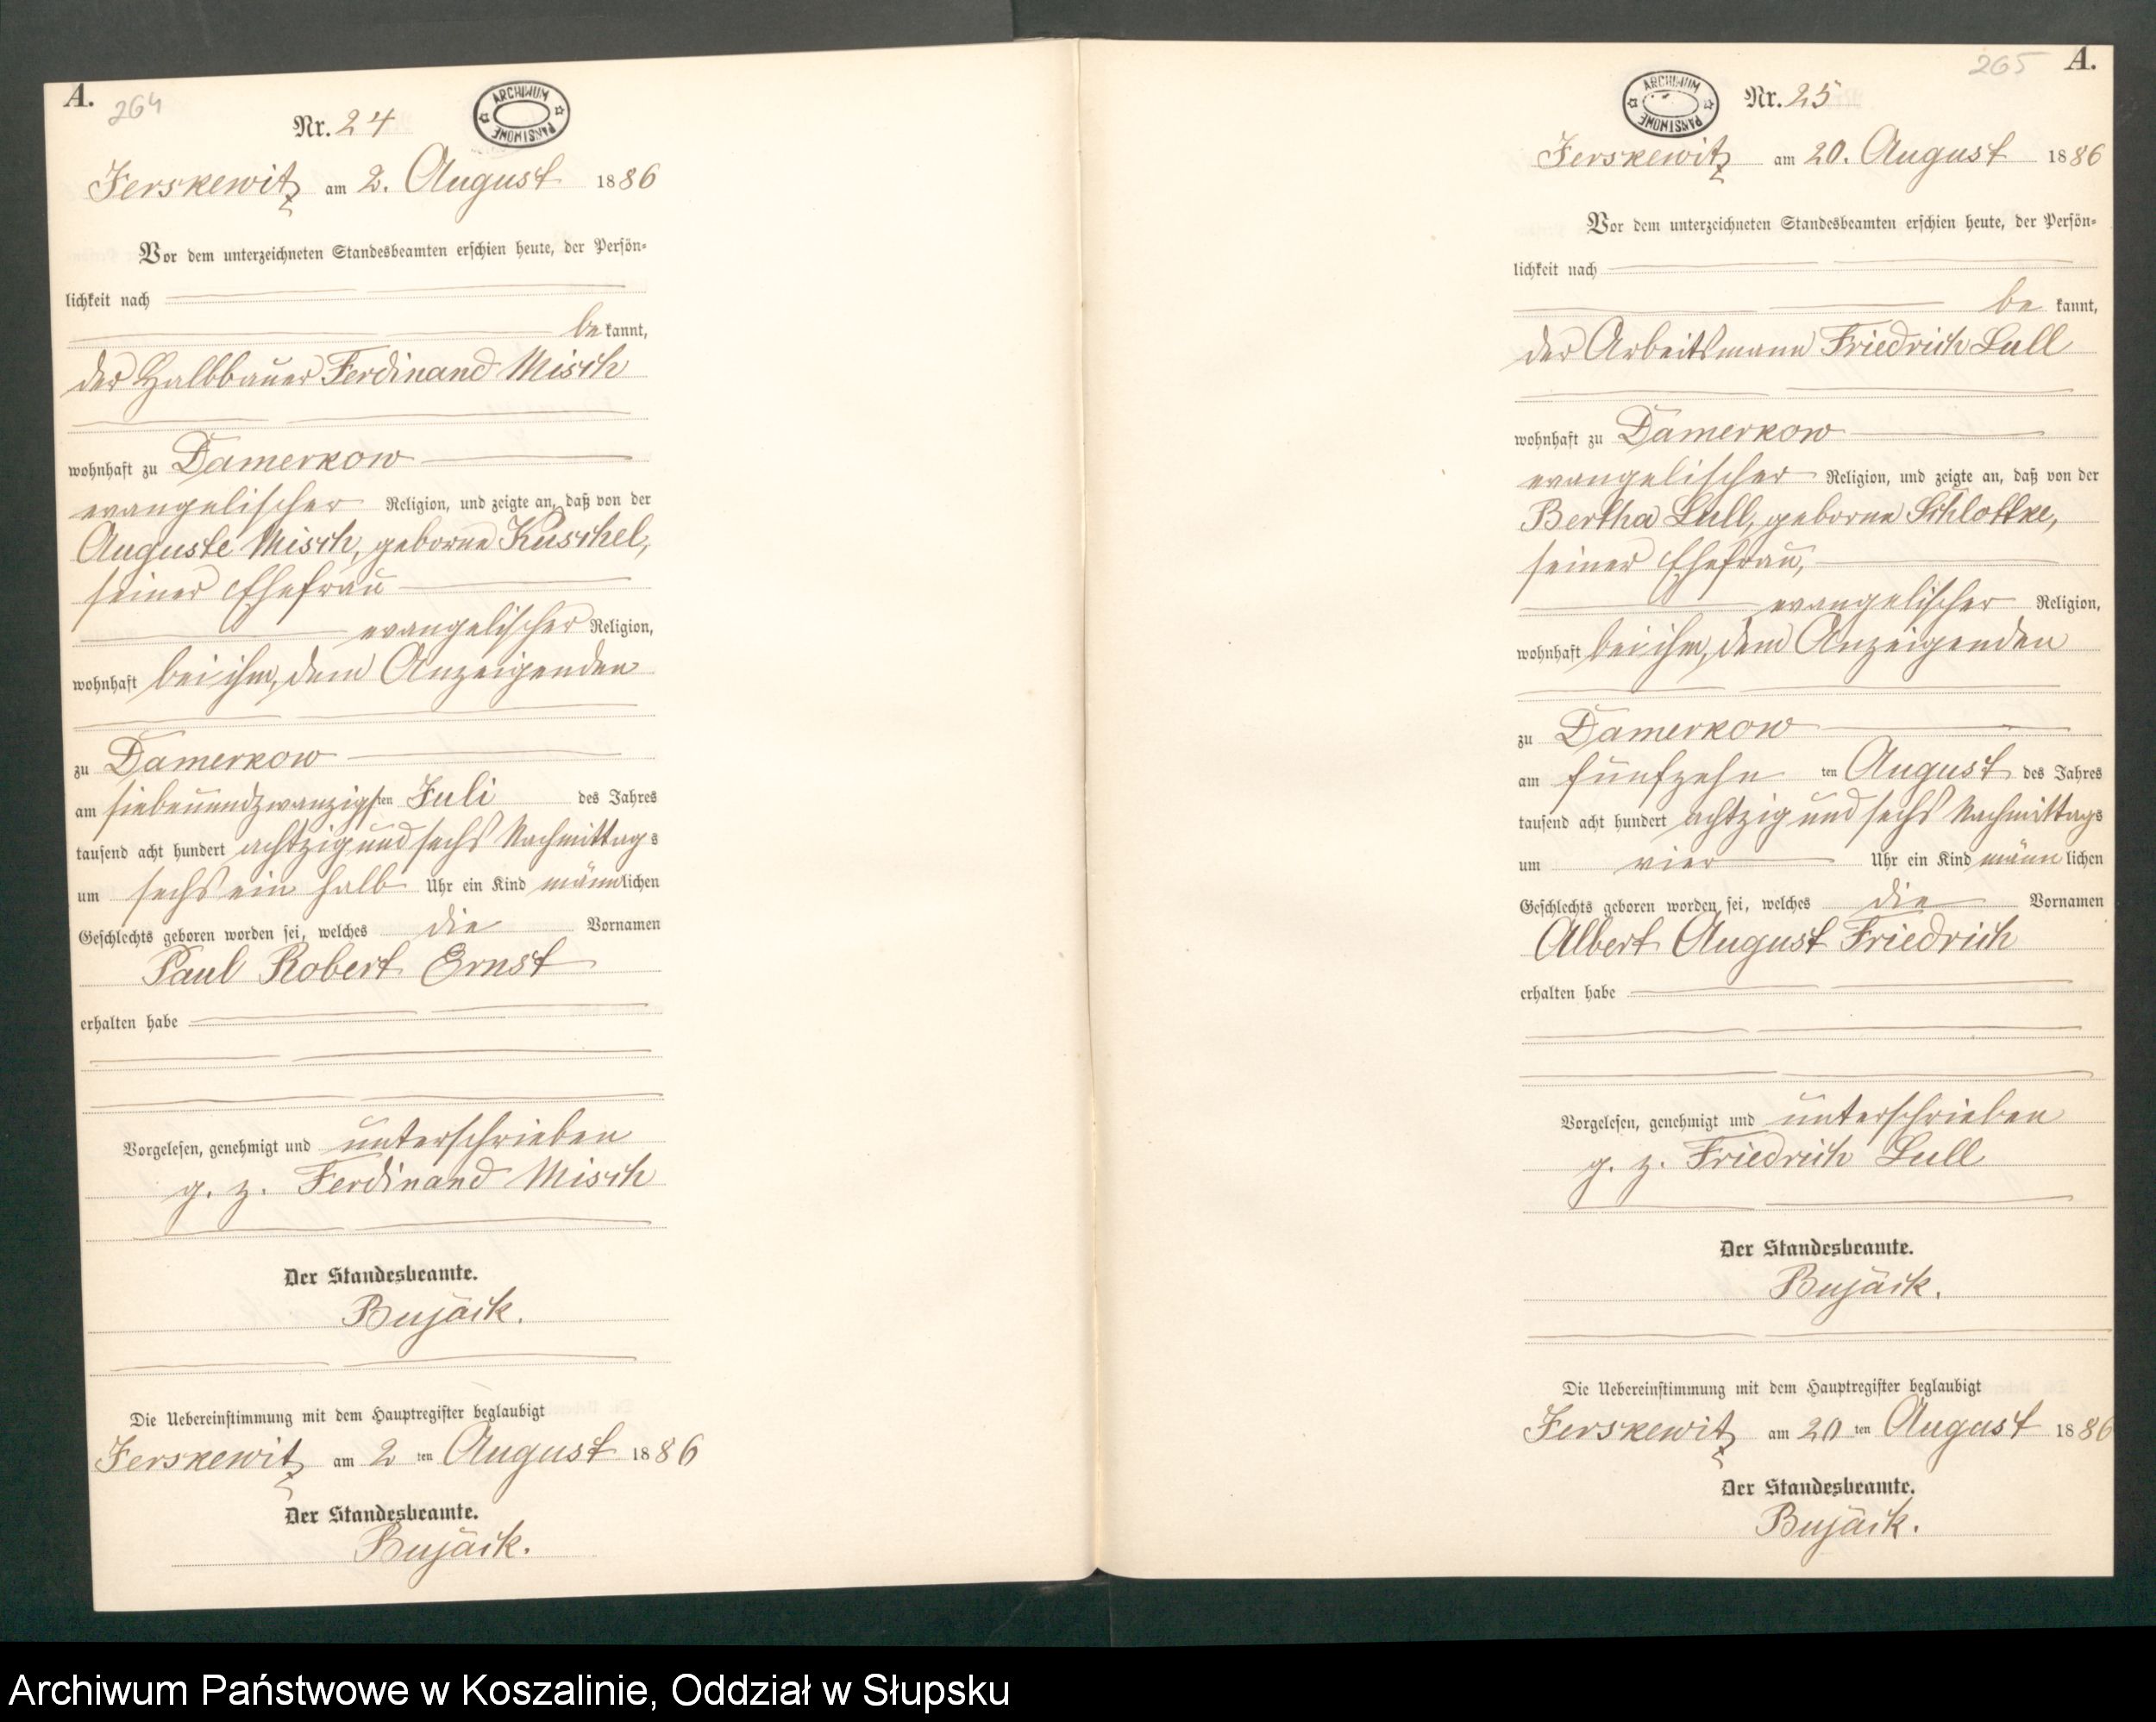 A. 264
Nr. 24
ARCHIWUM PAŃSTWOWE
Ferskewitz am 2. August 1886
Vor dem unterzeichneten Standesbeamten erschien heute, der Persön-
lichkeit nach
be kannt,
der Halbbauer Ferdinand Misch
wohnhaft zu Damerkow
evangelischer Religion, und zeigte an, daß von der
Auguste Misch, geborne Kuschel,
seiner Ehefrau
evangelischer Religion,
wohnhaft bei ihm, dem Anzeigenden
zu Damerkow
am siebenundzwanzigsten Juli des Jahres
tausend acht hundert achtzig und sechs Nachmittags
um sechs ein halb Uhr ein Kind männlichen
Geschlechts geboren worden sei, welches die Vornamen
Paul Robert Ernst
erhalten habe
Vorgelesen, genehmigt und unterschrieben
g. z. Ferdinand Misch
Der Standesbeamte.
Bujäck.
Die Uebereinstimmung mit dem Hauptregister beglaubigt
Ferskewitz am 2 ten August 1886
Der Standesbeamte.
Bujäck.
265 A.
ARCHIWUM PAŃSTWOWE
Nr. 25
Ferskewitz am 20. August 1886
Vor dem unterzeichneten Standesbeamten erschien heute, der Persön-
lichkeit nach
be kannt,
der Arbeitsmann Friedrich Lull
wohnhaft zu Damerkow
evangelischer Religion, und zeigte an, daß von der
Bertha Lull, geborne Schlottke,
seiner Ehefrau,
evangelischer Religion,
wohnhaft bei ihm, dem Anzeigenden
zu Damerkow
am fünfzehn ten August des Jahres
tausend acht hundert achtzig und sechs Nachmittags
um vier Uhr ein Kind männ lichen
Geschlechts geboren worden sei, welches die Vornamen
Albert August Friedrich
erhalten habe
Vorgelesen, genehmigt und unterschrieben
g. z. Friedrich Lull
Der Standesbeamte.
Bujäck.
Die Uebereinstimmung mit dem Hauptregister beglaubigt
Ferskewitz am 20 ten August 1886
Der Standesbeamte.
Bujäck.
Archiwum Państwowe w Koszalinie, Oddział w Słupsku